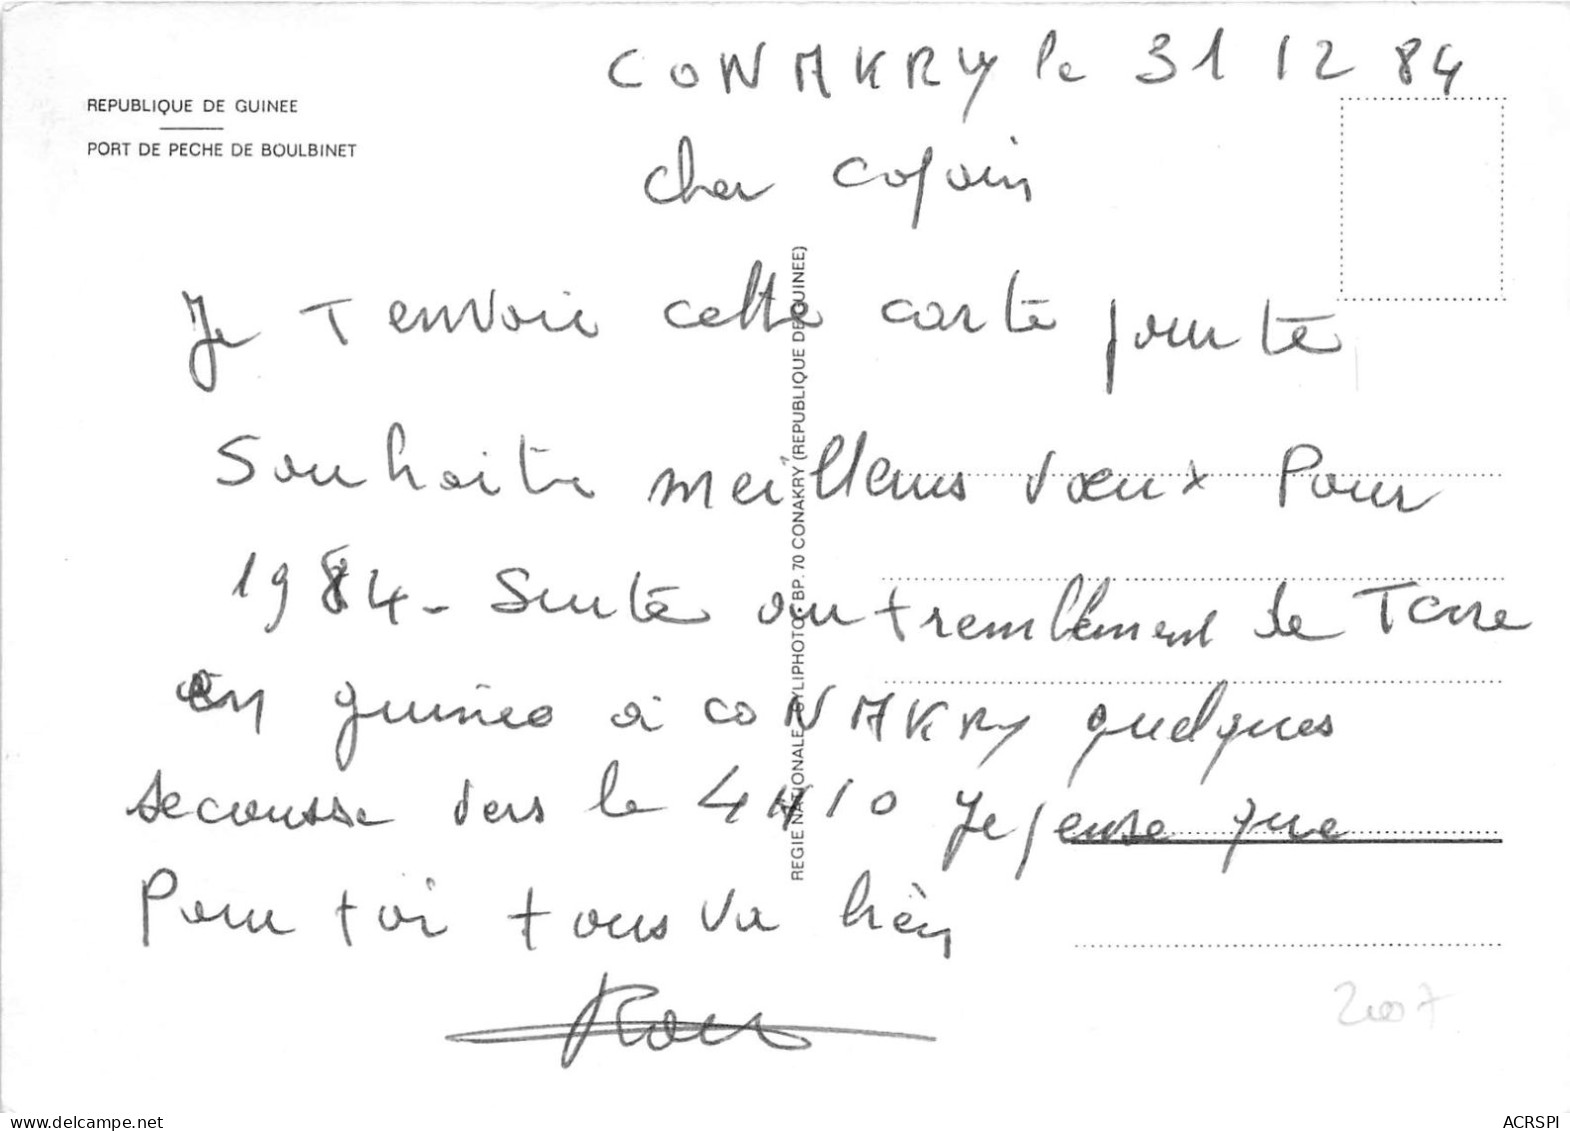 CONAKRY le 31 12 84
REPUBLIQUE DE GUINEE
PORT DE PECHE DE BOULBINET
cher copain
Je T envoie cette carte pour te
Souhaite meilleurs vœux Pour
1984 - Suite au tremblement de Terre
en guinée à CONAKRY quelques
secousse vers le 4H10 Je pense que
Pour toi tous va bièn
REGIE NATIONALE SYLIPHOTO - BP. 70 CONAKRY (REPUBLIQUE DE GUINEE)
2007
delcampe.net
ACRSPI